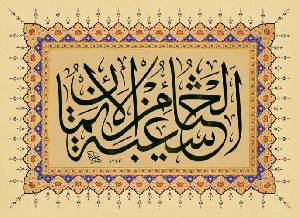 الحياء شعبة من الإيمان